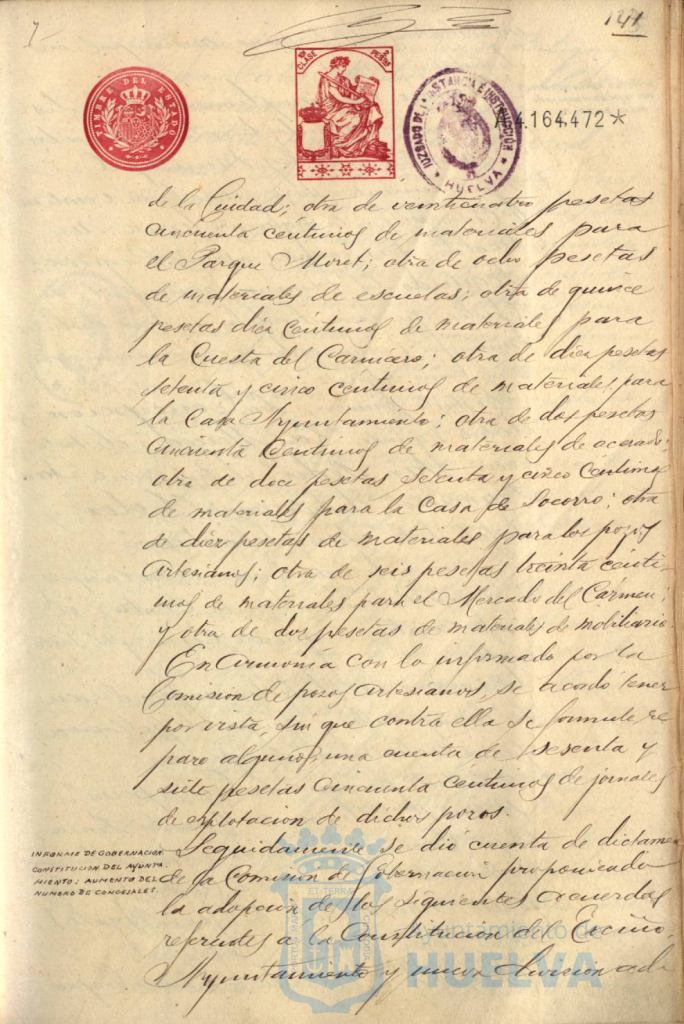 141
TIMBRE DEL ESTADO
1ª CLASE
2 PESETAS
JUZGADO DE 1ª INSTANCIA E INSTRUCCION
HUELVA
A4.164.472*
de la Ciudad; otra de veinticuatro pesetas
cincuenta céntimos de materiales para
el Parque Moret; otra de ocho pesetas
de materiales de escuelas; otra de quince
pesetas diez céntimos de materiales para
la Cuesta del Carnicero; otra de diez pesetas
setenta y cinco centimos de materiales para
la Casa Ayuntamiento; otra de dos pesetas
cincuenta céntimos de materiales de acerado;
otra de doce pesetas setenta y cinco céntimos
de materiales para la Casa de Socorro; otra
de diez pesetas de materiales para los pozos
artesianos; otra de seis pesetas treinta cénti-
mos de materiales para el Mercado del Cármen;
y otra de dos pesetas de materiales de mobiliario.
En armonía con lo informado por la
Comision de pozos artesianos, se acordó tener
por vista, sin que contra ella se formule re
paro alguno, una cuenta de sesenta y
siete pesetas cincuenta céntimos de jornales
de explotacion de dichos pozos.
INFORME DE GOBERNACION
CONSTITUCION DEL AYUNTA
MIENTO: AUMENTO DEL
NUMERO DE CONCEJALES.
Seguidamente se dió cuenta de dictamen
de la Comision de Gobernacion proponiendo
la adopcion de los siguientes acuerdos
referentes a la Constitucion del Excmo.
Ayuntamiento y nueva division
Ayuntamiento de
HUELVA